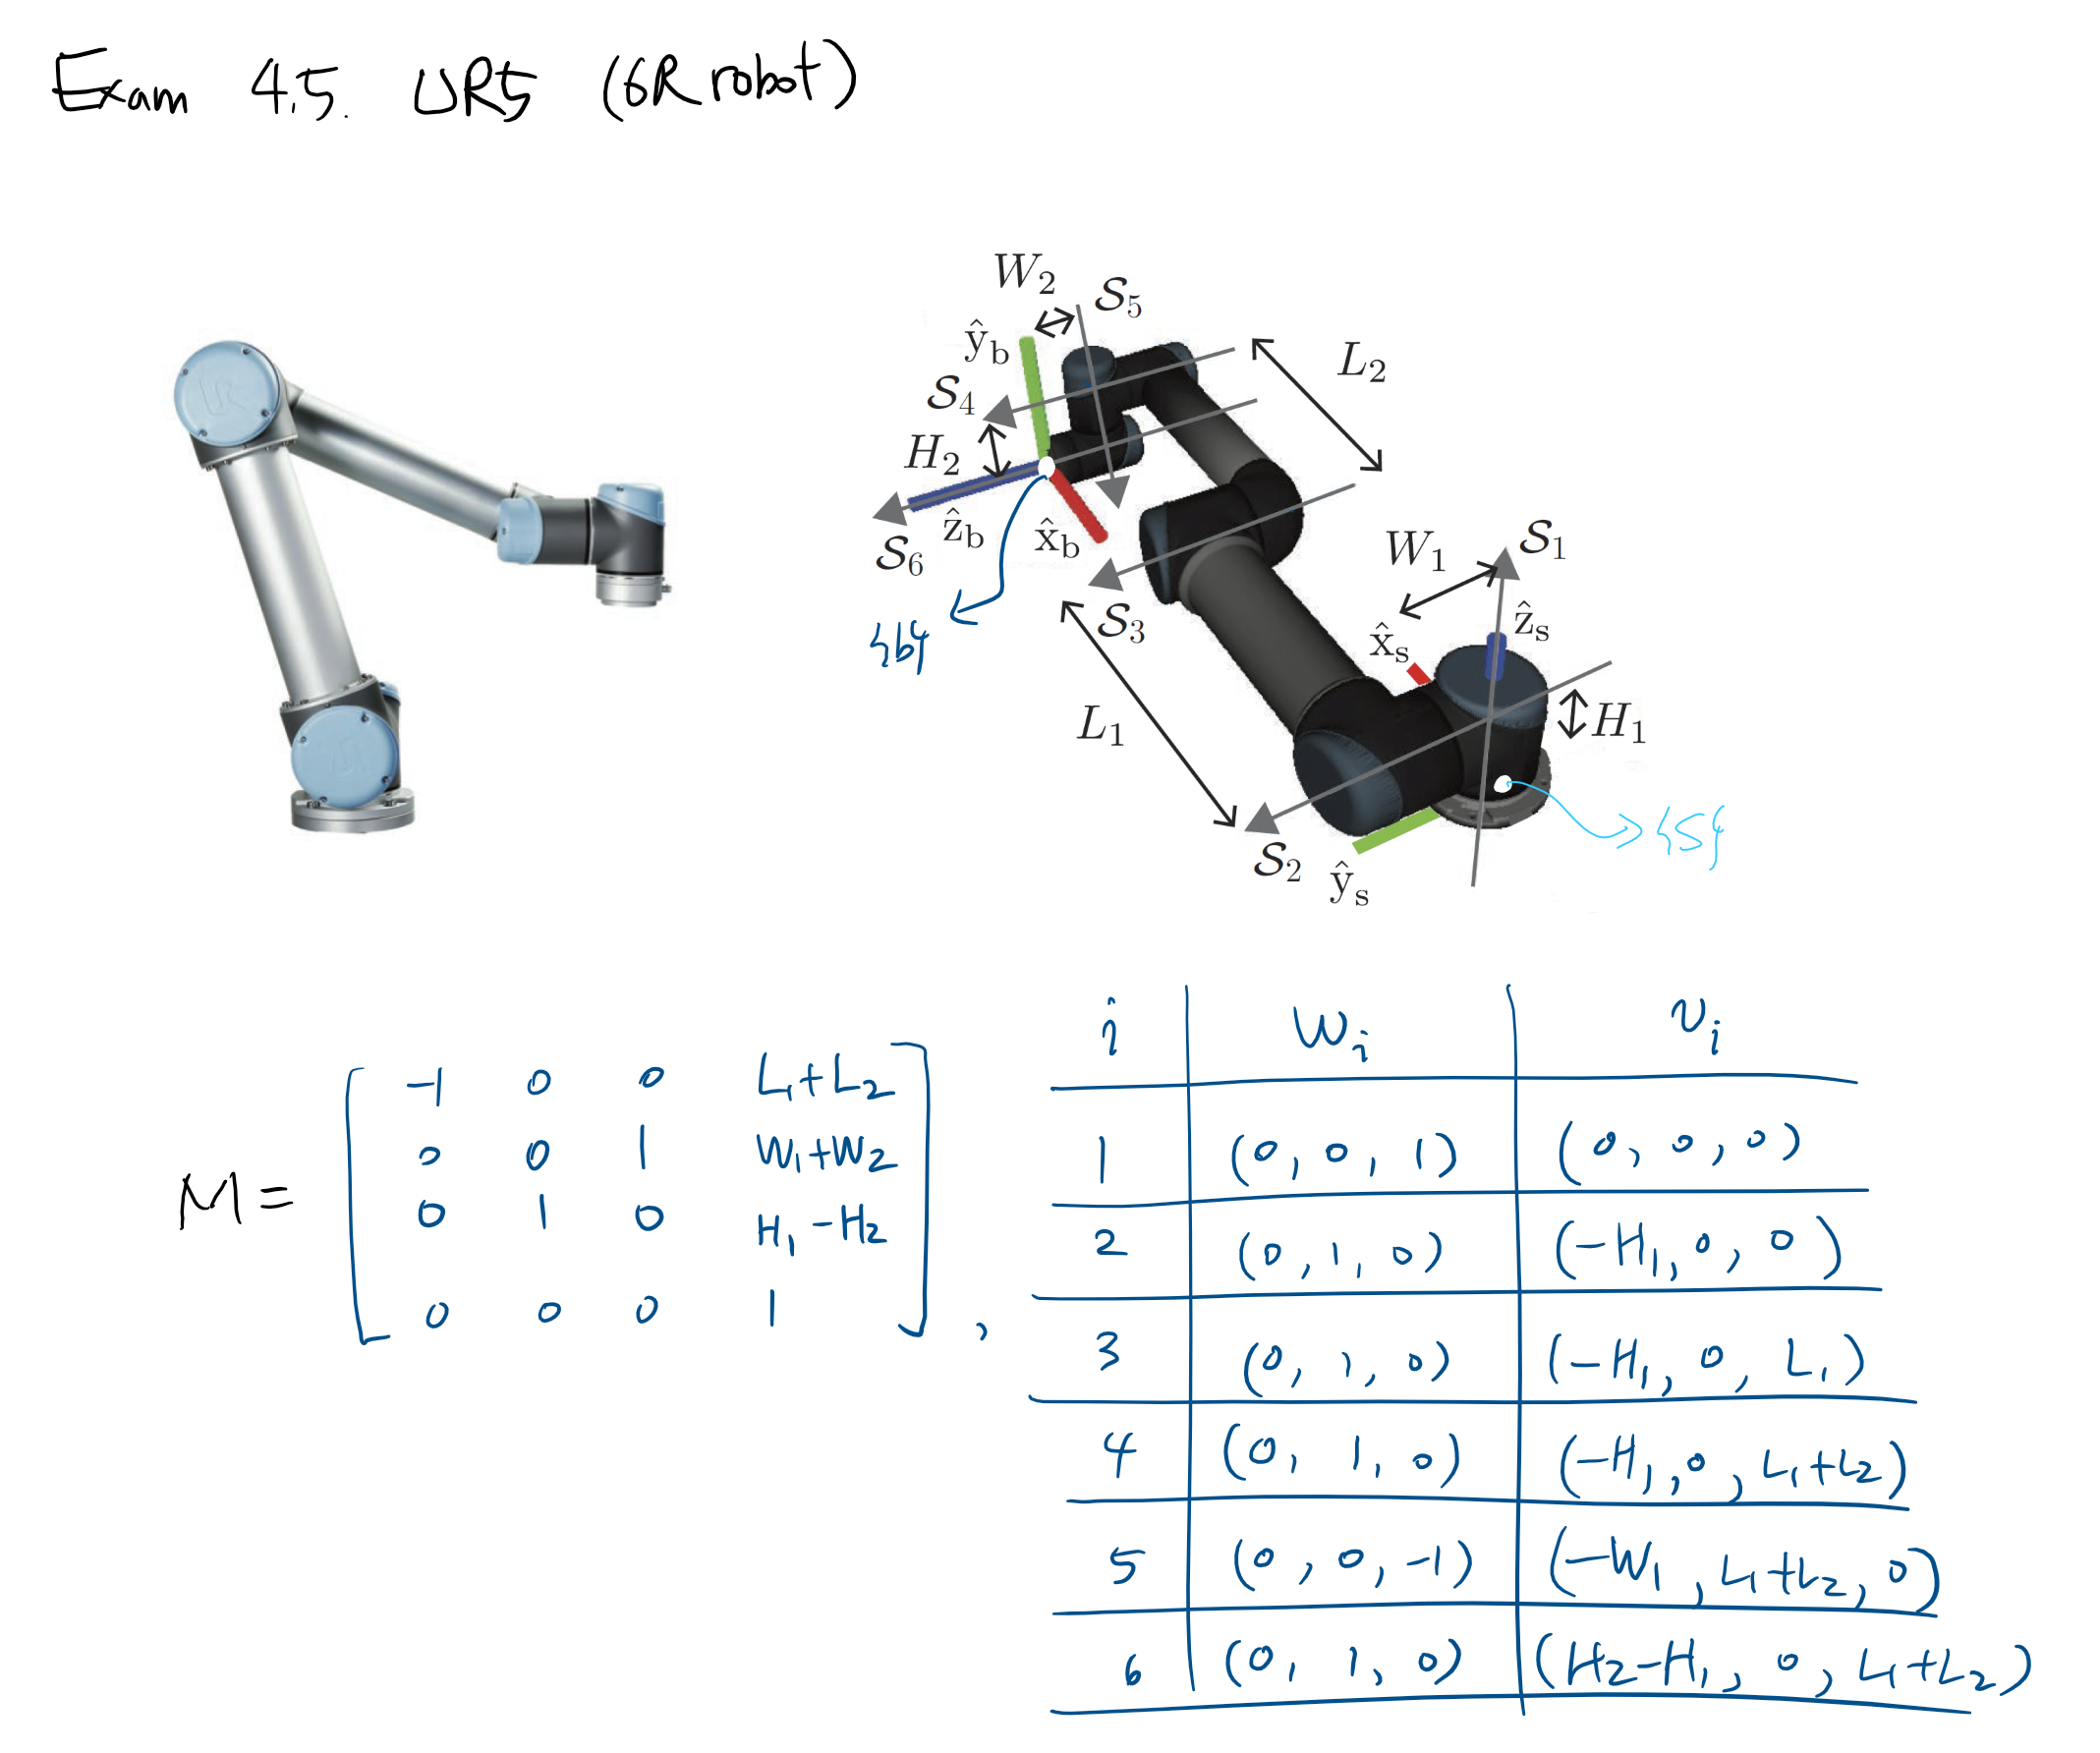 Exam 4.5. UR5 (6R robot)
W₂
S₅
ŷ_b
L₂
S₄
H₂
S₆
ẑ_b
x̂_b
{b}
S₃
W₁
S₁
x̂_s
ẑ_s
L₁
H₁
{s}
S₂
ŷ_s
M =
-1 0 0 L₁+L₂
0 0 1 W₁+W₂
0 1 0 H₁-H₂
0 0 0 1
,
i wᵢ vᵢ
1 (0, 0, 1) (0, 0, 0)
2 (0, 1, 0) (-H₁, 0, 0)
3 (0, 1, 0) (-H₁, 0, L₁)
4 (0, 1, 0) (-H₁, 0, L₁+L₂)
5 (0, 0, -1) (-W₁, L₁+L₂, 0)
6 (0, 1, 0) (H₂-H₁, 0, L₁+L₂)